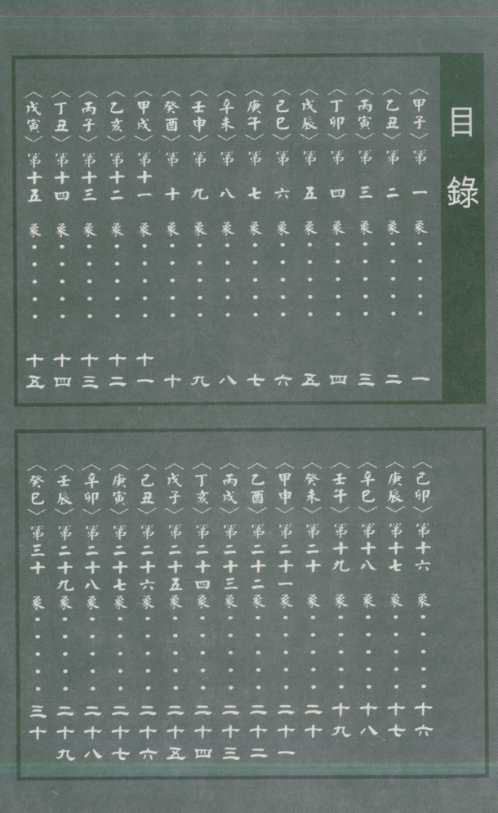 目錄
〈甲子〉第一象・・・・・一
〈乙丑〉第二象・・・・・二
〈丙寅〉第三象・・・・・三
〈丁卯〉第四象・・・・・四
〈戊辰〉第五象・・・・・五
〈己巳〉第六象・・・・・六
〈庚午〉第七象・・・・・七
〈辛未〉第八象・・・・・八
〈壬申〉第九象・・・・・九
〈癸酉〉第十象・・・・・十
〈甲戌〉第十一象・・・・・十一
〈乙亥〉第十二象・・・・・十二
〈丙子〉第十三象・・・・・十三
〈丁丑〉第十四象・・・・・十四
〈戊寅〉第十五象・・・・・十五
〈己卯〉第十六象・・・・・十六
〈庚辰〉第十七象・・・・・十七
〈辛巳〉第十八象・・・・・十八
〈壬午〉第十九象・・・・・十九
〈癸未〉第二十象・・・・・二十
〈甲申〉第二十一象・・・・・二十一
〈乙酉〉第二十二象・・・・・二十二
〈丙戌〉第二十三象・・・・・二十三
〈丁亥〉第二十四象・・・・・二十四
〈戊子〉第二十五象・・・・・二十五
〈己丑〉第二十六象・・・・・二十六
〈庚寅〉第二十七象・・・・・二十七
〈辛卯〉第二十八象・・・・・二十八
〈壬辰〉第二十九象・・・・・二十九
〈癸巳〉第三十象・・・・・三十